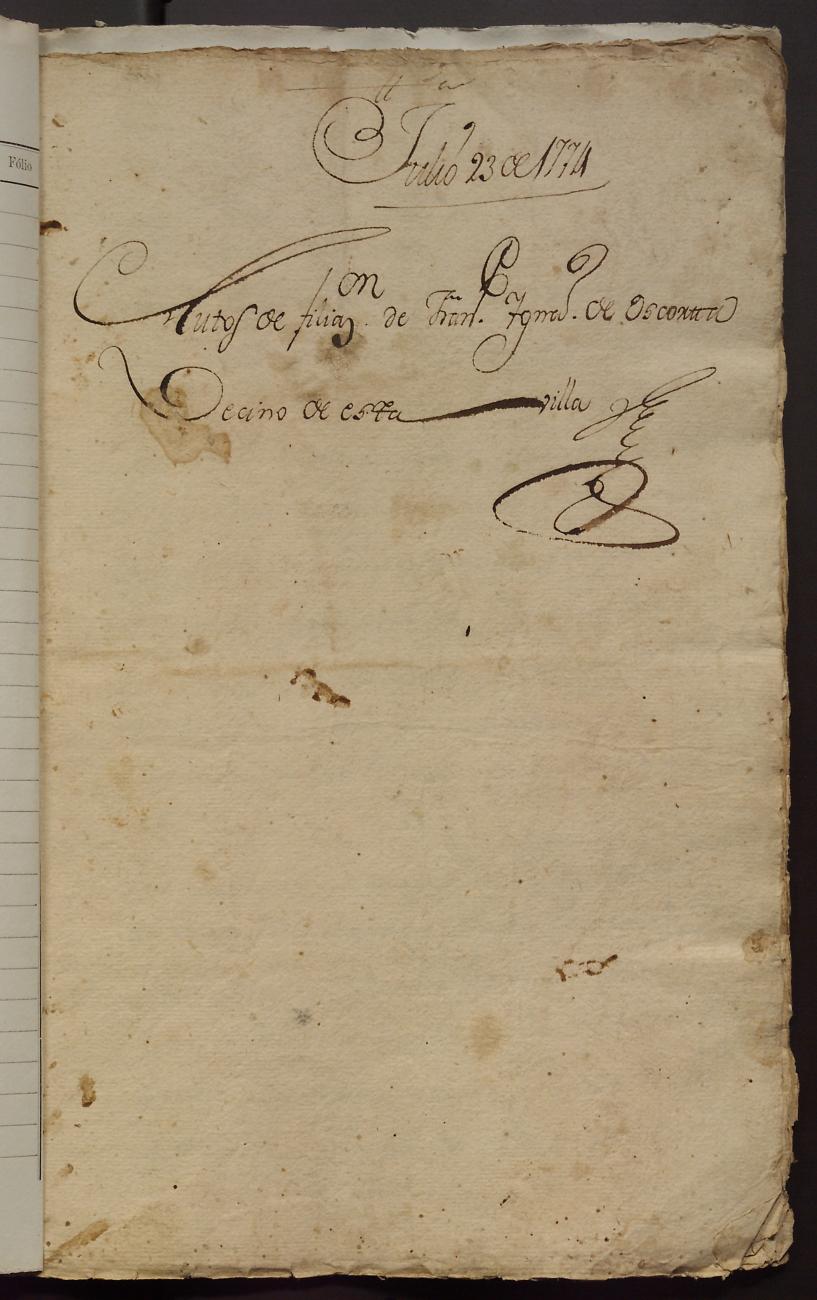 Fólio
Julio 23 de 1774
Autos de filiaz.on de Fran.co Ignaº. de Oscoritta
Vecino de esta villa